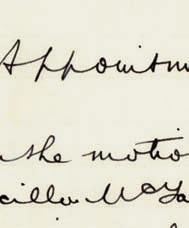 Appointm
the motio
cilla McGa